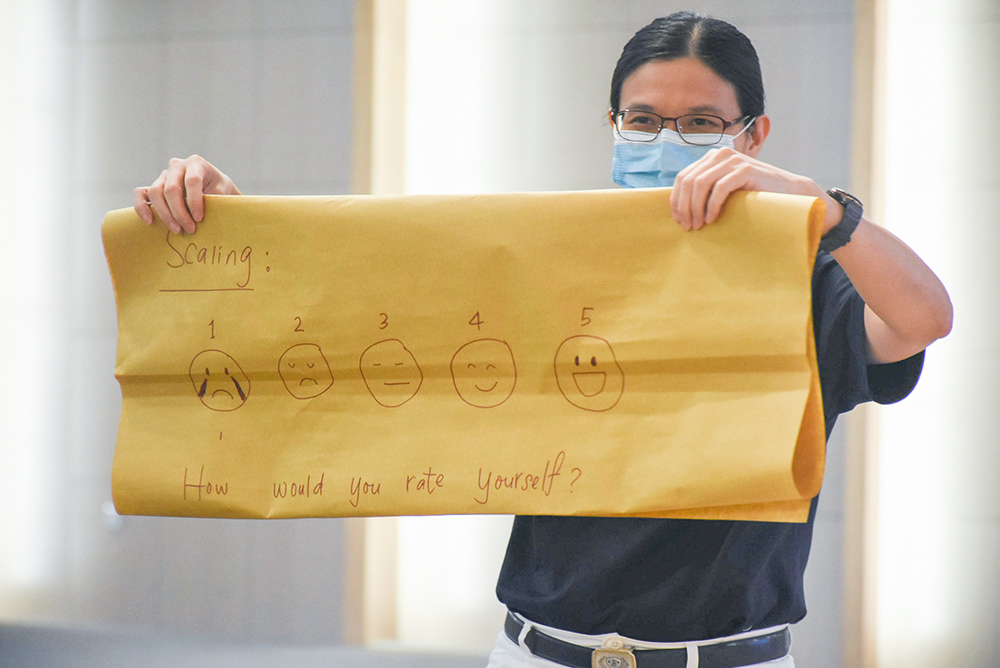 Scaling:
1 2 3 4 5
How would you rate yourself?